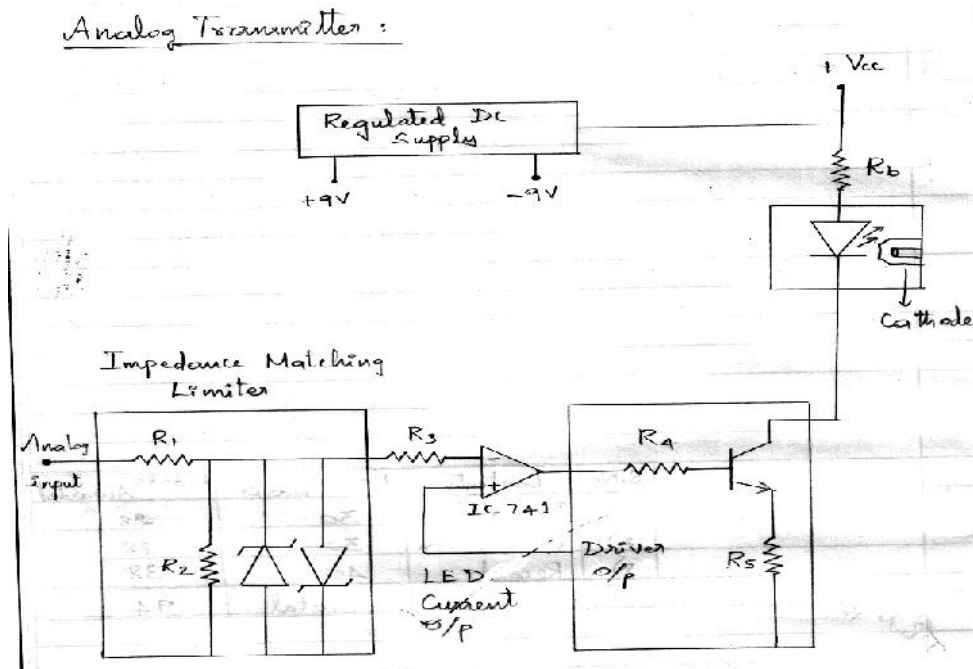 Analog Transmitter :
+ Vcc
Regulated DC
Supply
+9V
-9V
Rb
Cathode
Impedance Matching
Limiter
Analog
input
R1
R3
R4
-
+
IC 741
R2
Driver
O/p
R5
LED
Current
O/p